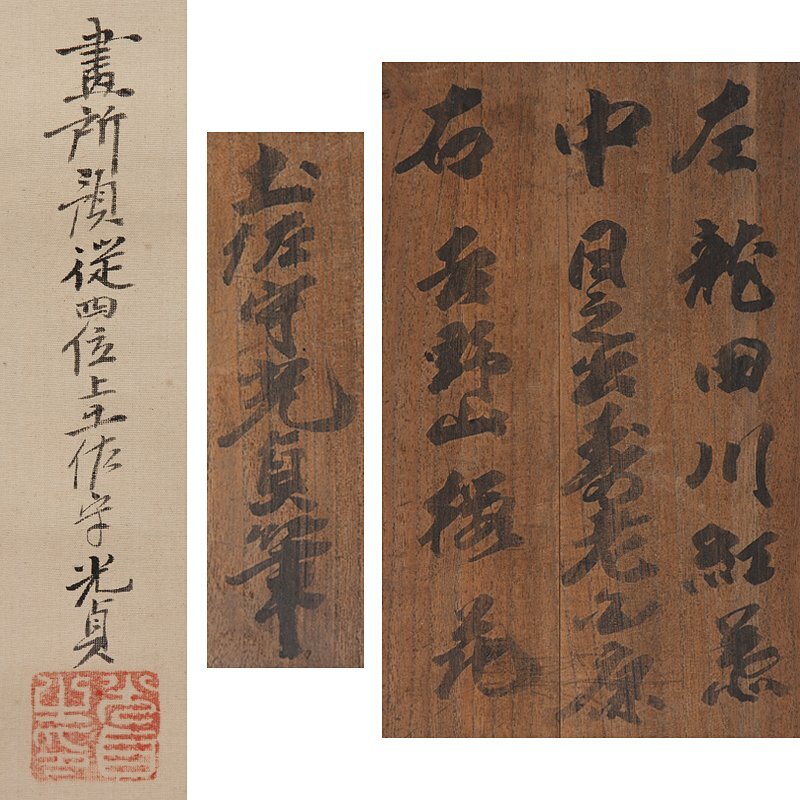 左 龍田川紅葉
中 日之出寿老
右 吉野山櫻花
土佐守光貞筆
畫所預從四位上土佐守光貞